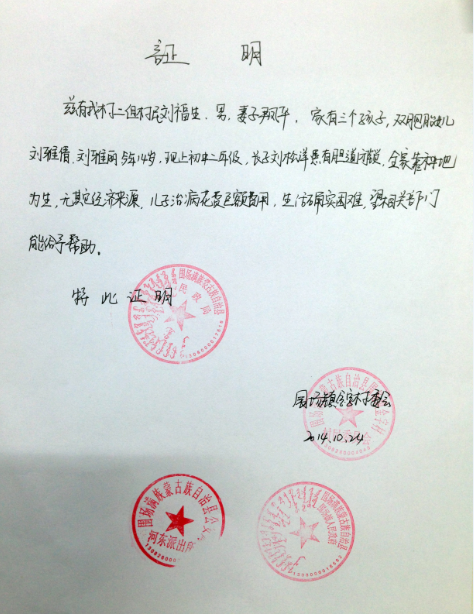 証 明
兹有我村二组村民刘福生、男,妻子 家有三个孩子,双胞胎女儿
刘雅倩、刘雅丽今年14岁,现上初中二年级,长子刘 患有胆道闭锁,全家靠种地
为生,无其它经济来源,儿子治病花费巨额费用,生活确实困难,望相关部门
能给予帮助。
特此证明
围场满族蒙古族自治县
民政局
围场镇 村委会
2014.10.24
围场满族蒙古族自治县公安局
河东派出所